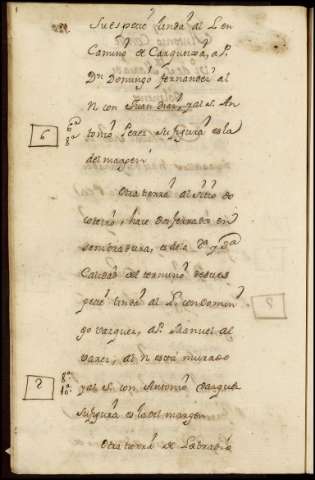 Su especie linda al L con
Camino de Carquenza, a P.
Dn Domingo fernandez al
N con Juan Diaz, y al S. An
tonio Perez Su figura es la
del margen
6
Otra tierra al Sitio do
coterro, hace dos ferrados en
sembradura, es dela 8ª y
Calidad del termino de su es
pecie linda al L. con Domin
go vazquez, a P. Manuel Al
varez, al N esta murado
y al S. con Antonio Vazquez
Su figura es la del margen
7
8ª
10ª
Otra tierra de Labradio